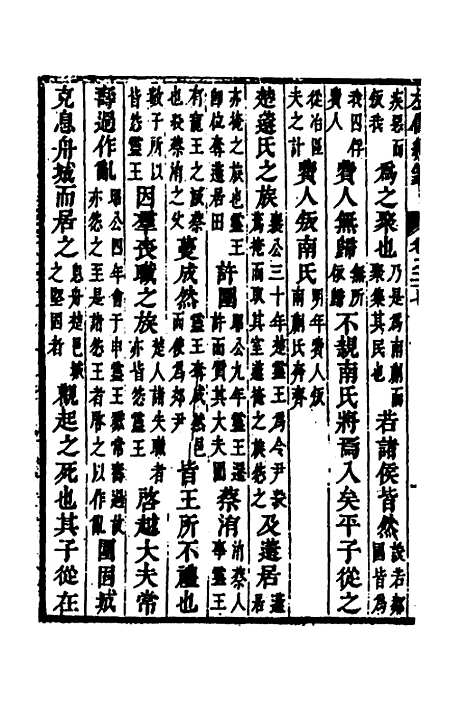 疾惡而叛我為之聚也乃是為南蒯而聚集其民也若諸侯皆然設若鄰國皆為
我囚俘費人費人無歸無所依歸不親南氏將焉入矣平子從之
從冶區夫之計費人叛南氏明年費人叛南蒯氏奔齊
楚薳氏之族襄公三十年楚靈王為令尹殺薳掩而取其室薳掩之族怨之及薳居薳居
亦掩之族也靈王即位奪薳居田許圍昭公九年靈王遷許而質其大夫圍蔡洧洧蔡人事靈王
有寵王之滅蔡也殺蔡洧之父蔓成然靈王奪成然邑而使為郊尹皆王所不禮也
數子所以皆怨靈王因羣喪職之族楚人諸失職者亦皆怨靈王啓越大夫常
壽過作亂昭公四年會于申靈王戮常壽過故亦怨之至是諸怨王者啓之以作亂圍固城
克息舟城而居之息舟楚邑城之堅固者觀起之死也其子從在